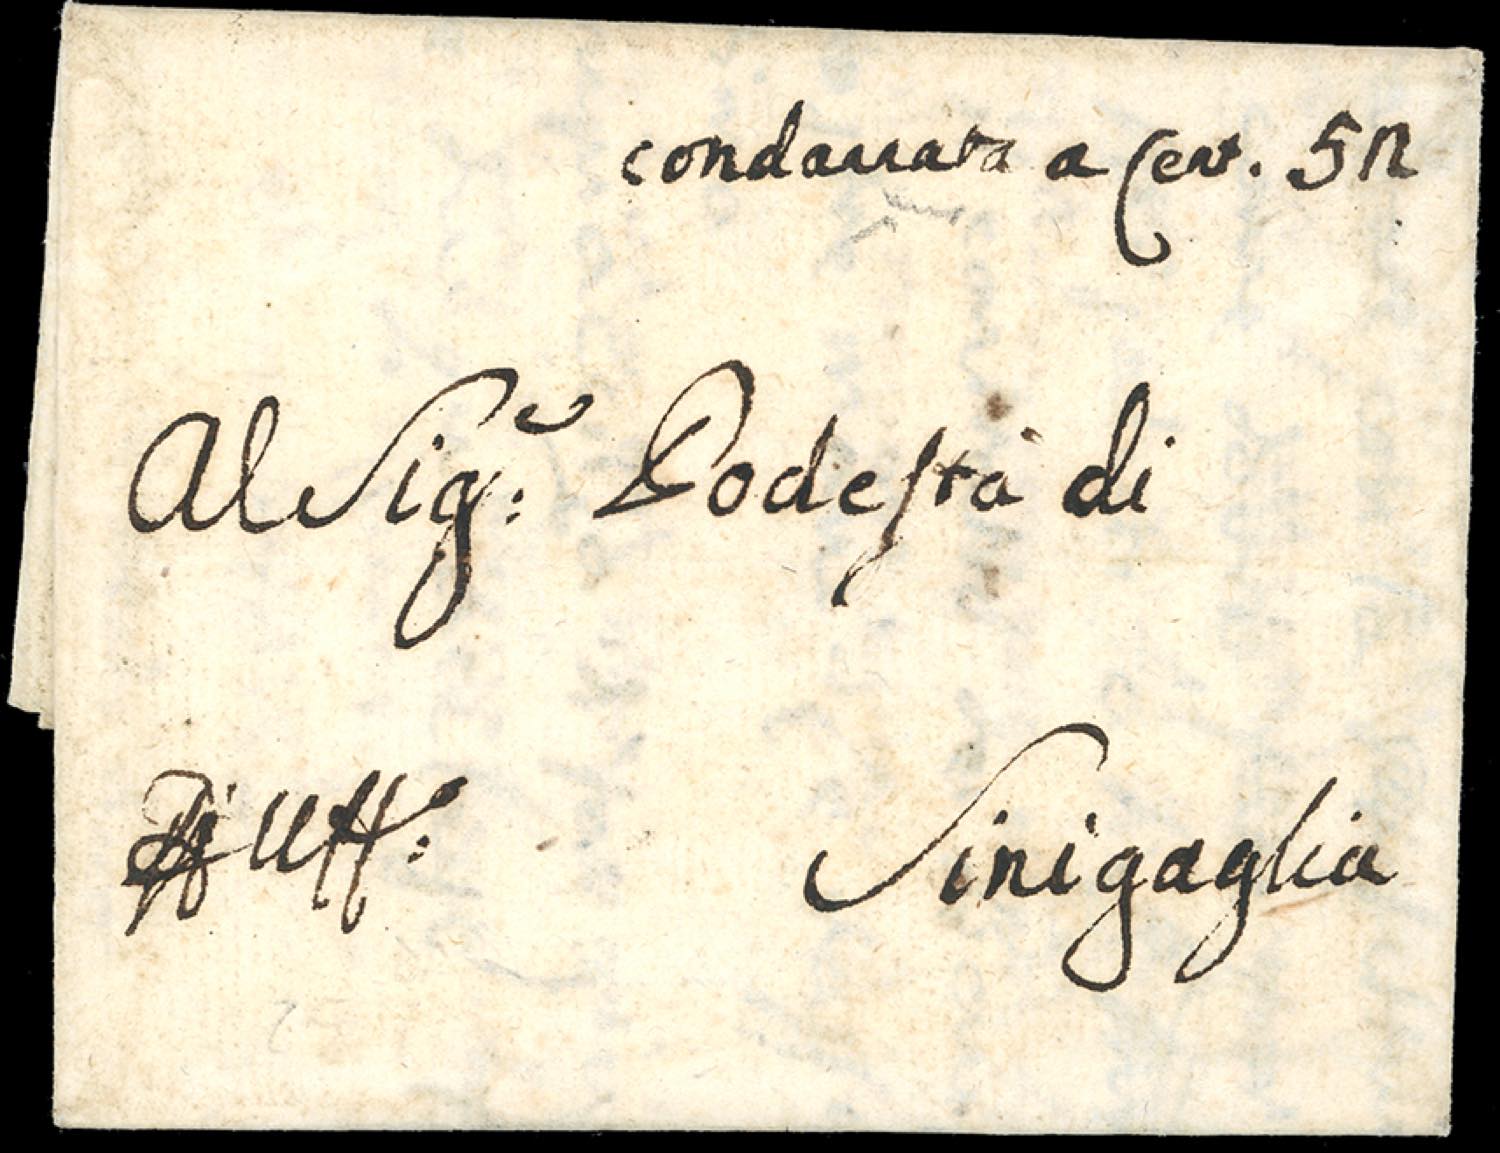 condannata a Cent. 52
Al Sig.r: Podestà di
Di Uff.o:
Sinigaglia